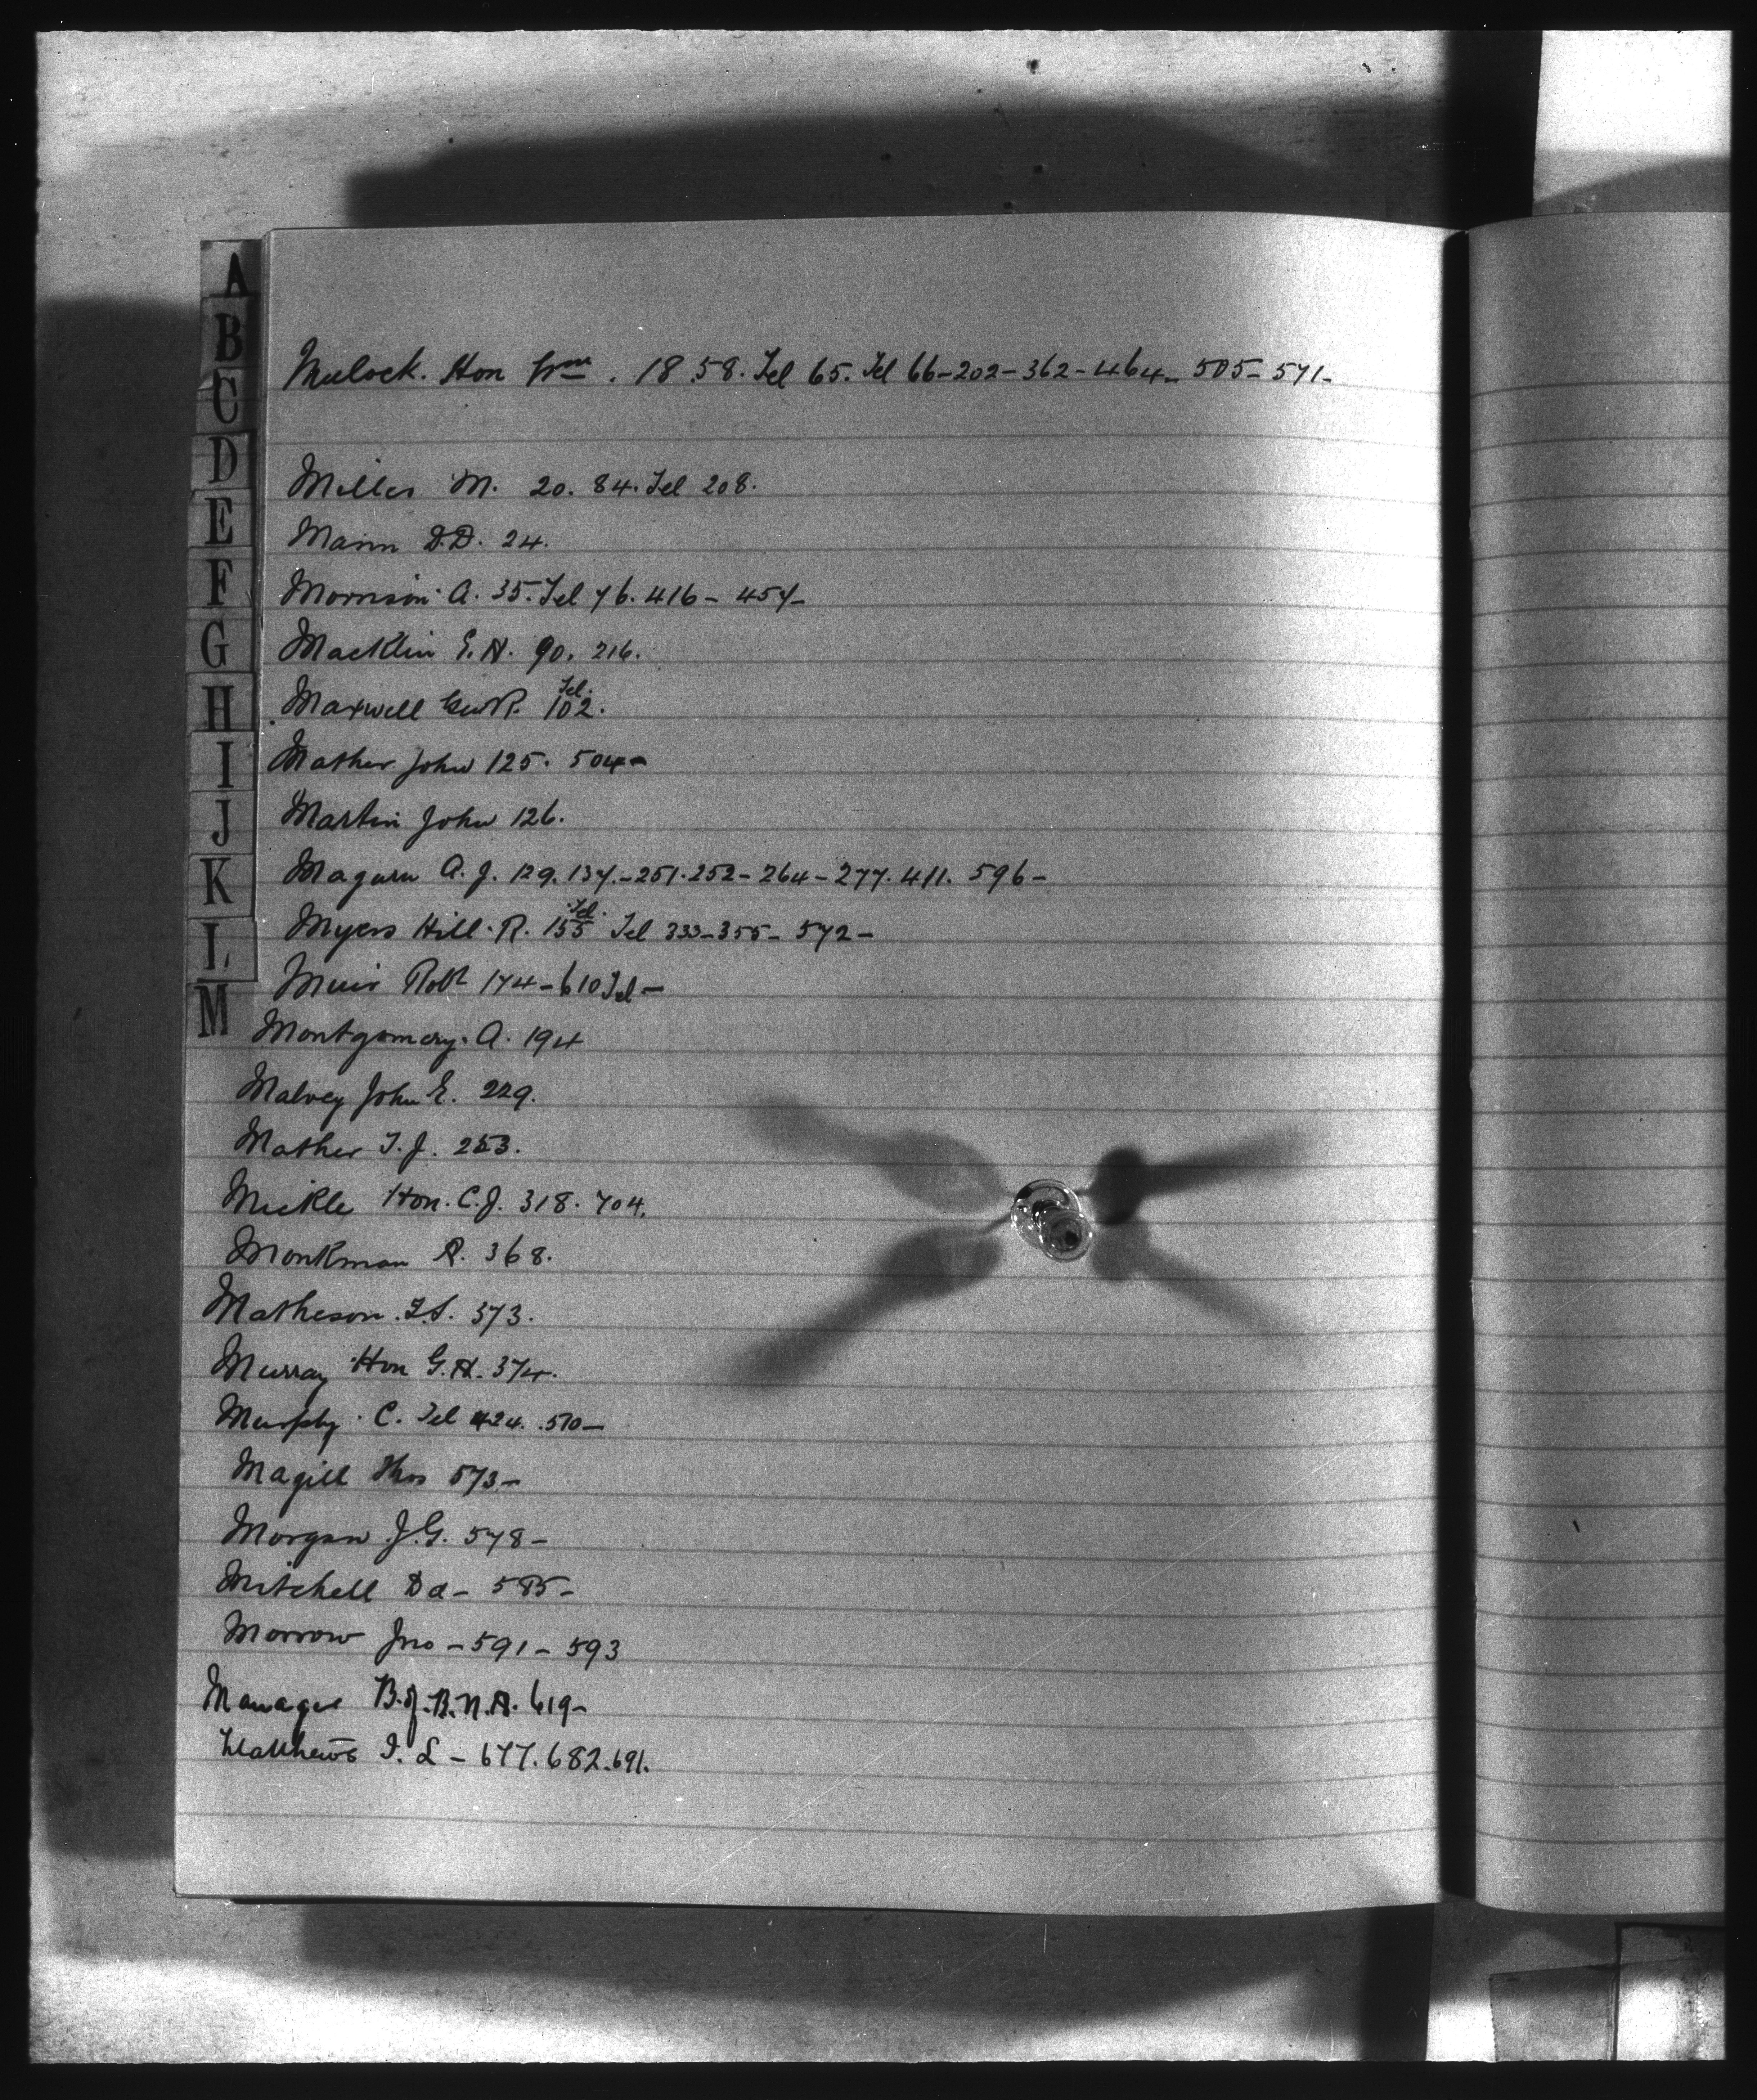 A
B
C
D
E
F
G
H
I
J
K
L
M
Mulock. Hon Wm. 18. 58. Tel 65. Tel 66-202-362-464- 505- 571-
Miller M. 20. 84. Tel 208.
Mann D.D. 24.
Morrison A. 35. Tel 76. 416- 457-
Macklin E. H. 90. 216.
Maxwell Geo R. Tel. 102.
Mather John 125. 504-
Martin John 126.
Magurn A. J. 129. 137.-251.252-264-277. 411. 596-
Myers Hill. R. Tel. 155 Tel 333-355- 572-
Muir Robt 174-610 Tel-
Montgomery. A. 194
Malvey John E. 229.
Mather T. J. 253.
Mickle Hon. C. J. 318. 704.
Monkman A. 368.
Matheson 373.
Murray Hon G. H. 374.
Murphy. C. Tel 424. 510-
Magill Thos 573-
Morgan J. G. 578-
Mitchell Dd- 585-
Morrow Jno-591- 593
Manager B. of B. N. A. 619-
Matthews I. L- 677. 682. 691.